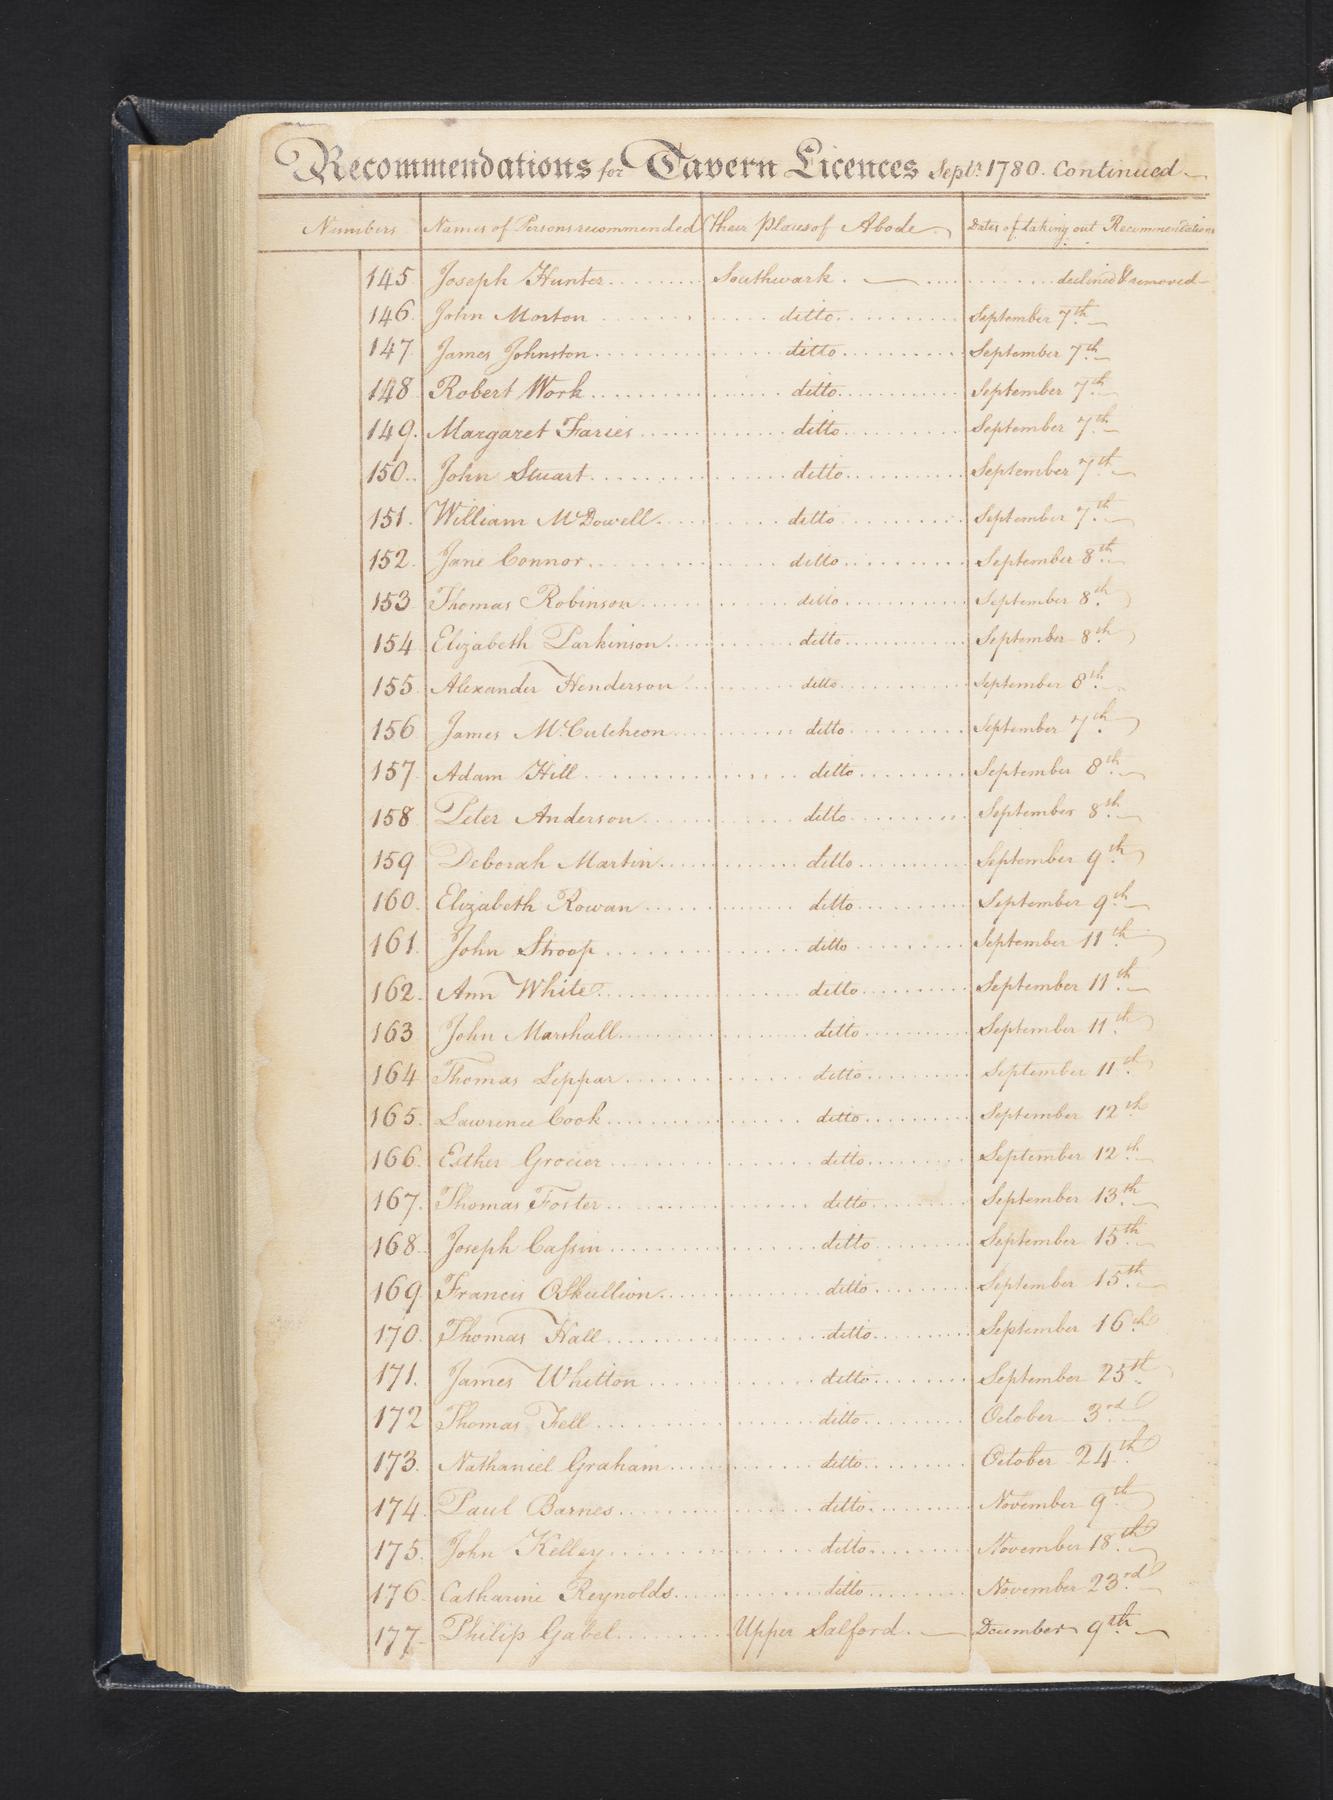 Recommendations for Tavern Licences Sept.r 1780. Continued
Numbers Names of Persons recommended Their Places of Abode Dates of taking out Recommendations
145 Joseph Hunter Southwark. declined & removed
146 John Morton ditto September 7th
147 James Johnston ditto September 7th
148 Robert Work ditto September 7th
149. Margaret Faries ditto September 7th
150. John Stuart ditto September 7th
151. William McDowell ditto September 7th
152. Jane Connor ditto September 8th
153 Thomas Robinson ditto September 8th
154 Elizabeth Parkinson ditto September 8th
155. Alexander Henderson ditto September 8th
156 James McCutcheon ditto September 7th
157. Adam Hill ditto September 8th
158 Peter Anderson ditto September 8th
159 Deborah Martin ditto September 9th
160. Elizabeth Rowan ditto September 9th
161. John Stroop ditto September 11th
162. Ann White ditto September 11th
163 John Marshall ditto September 11th
164 Thomas Leppar ditto September 11th
165. Lawrence Cook ditto September 12th
166. Esther Grocier ditto September 12th
167. Thomas Foster ditto September 13th
168. Joseph Caſsin ditto September 15th
169 Francis OSkullion ditto September 15th
170. Thomas Hall ditto September 16th
171. James Whitton ditto September 25th
172 Thomas Fell ditto October 3rd
173. Nathaniel Graham ditto October 24th
174. Paul Barnes ditto November 9th
175. John Kelley ditto November 18th
176. Catharine Reynolds ditto November 23rd
177. Philip Gabel Upper Salford. December 9th